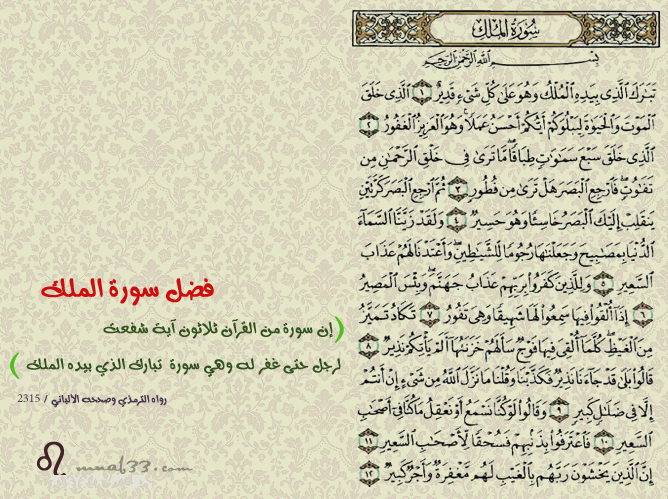 سُورَةُ الْمُلْكِ
بِسْمِ اللَّهِ الرَّحْمَٰنِ الرَّحِيمِ
تَبَارَكَ الَّذِي بِيَدِهِ الْمُلْكُ وَهُوَ عَلَىٰ كُلِّ شَيْءٍ قَدِيرٌ ١ الَّذِي خَلَقَ
الْمَوْتَ وَالْحَيَاةَ لِيَبْلُوَكُمْ أَيُّكُمْ أَحْسَنُ عَمَلًا وَهُوَ الْعَزِيزُ الْغَفُورُ ٢
الَّذِي خَلَقَ سَبْعَ سَمَاوَاتٍ طِبَاقًا مَا تَرَىٰ فِي خَلْقِ الرَّحْمَٰنِ مِن
تَفَاوُتٍ فَارْجِعِ الْبَصَرَ هَلْ تَرَىٰ مِن فُطُورٍ ٣ ثُمَّ ارْجِعِ الْبَصَرَ كَرَّتَيْنِ
يَنقَلِبْ إِلَيْكَ الْبَصَرُ خَاسِئًا وَهُوَ حَسِيرٌ ٤ وَلَقَدْ زَيَّنَّا السَّمَاءَ
الدُّنْيَا بِمَصَابِيحَ وَجَعَلْنَاهَا رُجُومًا لِلشَّيَاطِينِ وَأَعْتَدْنَا لَهُمْ عَذَابَ
السَّعِيرِ ٥ وَلِلَّذِينَ كَفَرُوا بِرَبِّهِمْ عَذَابُ جَهَنَّمَ وَبِئْسَ الْمَصِيرُ
٦ إِذَا أُلْقُوا فِيهَا سَمِعُوا لَهَا شَهِيقًا وَهِيَ تَفُورُ ٧ تَكَادُ تَمَيَّزُ
مِنَ الْغَيْظِ كُلَّمَا أُلْقِيَ فِيهَا فَوْجٌ سَأَلَهُمْ خَزَنَتُهَا أَلَمْ يَأْتِكُمْ نَذِيرٌ ٨
قَالُوا بَلَىٰ قَدْ جَاءَنَا نَذِيرٌ فَكَذَّبْنَا وَقُلْنَا مَا نَزَّلَ اللَّهُ مِن شَيْءٍ إِنْ أَنتُمْ
إِلَّا فِي ضَلَالٍ كَبِيرٍ ٩ وَقَالُوا لَوْ كُنَّا نَسْمَعُ أَوْ نَعْقِلُ مَا كُنَّا فِي أَصْحَابِ
السَّعِيرِ ١٠ فَاعْتَرَفُوا بِذَنبِهِمْ فَسُحْقًا لِأَصْحَابِ السَّعِيرِ ١١
إِنَّ الَّذِينَ يَخْشَوْنَ رَبَّهُم بِالْغَيْبِ لَهُم مَّغْفِرَةٌ وَأَجْرٌ كَبِيرٌ ١٢
فضل سورة الملك
( إن سورة من القرآن ثلاثون آية شفعت
لرجل حتى غفر له وهي سورة تبارك الذي بيده الملك )
رواه الترمذي وصححه الالباني / 2315